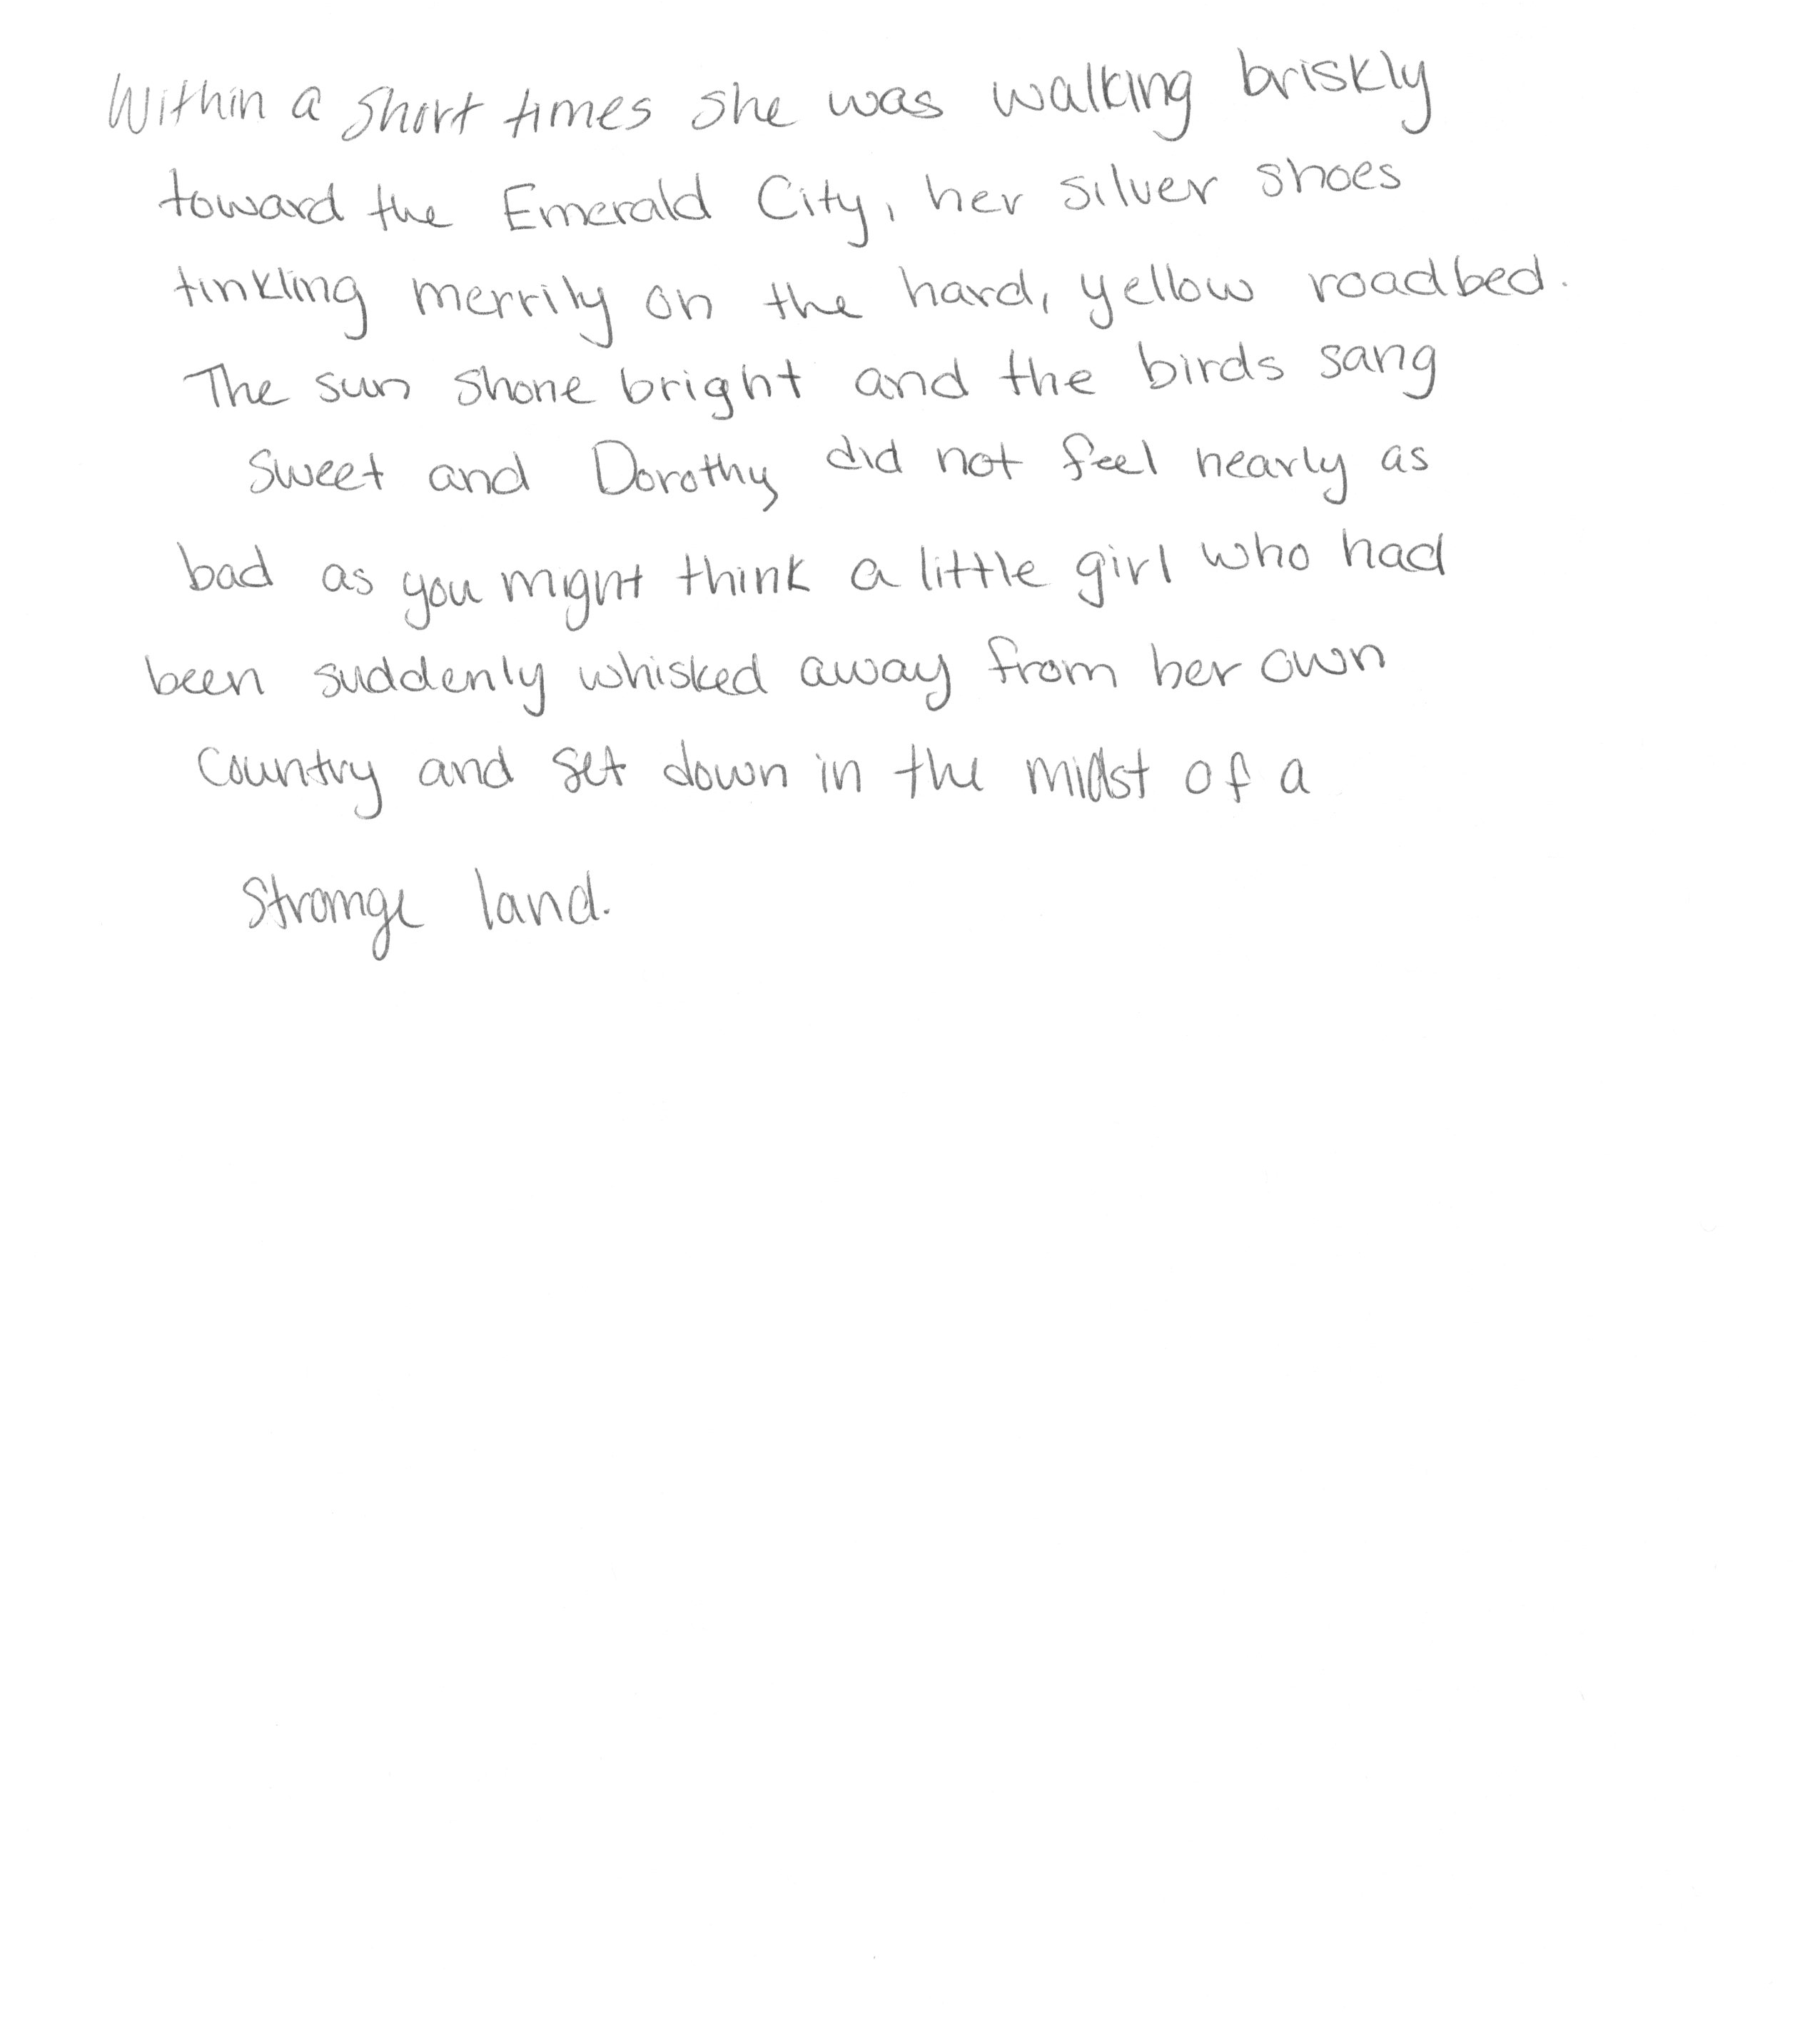 Within a short times she was walking briskly
toward the Emerald City, her silver shoes
tinkling merrily on the hard, yellow roadbed.
The sun shone bright and the birds sang
sweet and Dorothy did not feel nearly as
bad as you might think a little girl who had
been suddenly whisked away from her own
country and set down in the midst of a
strange land.